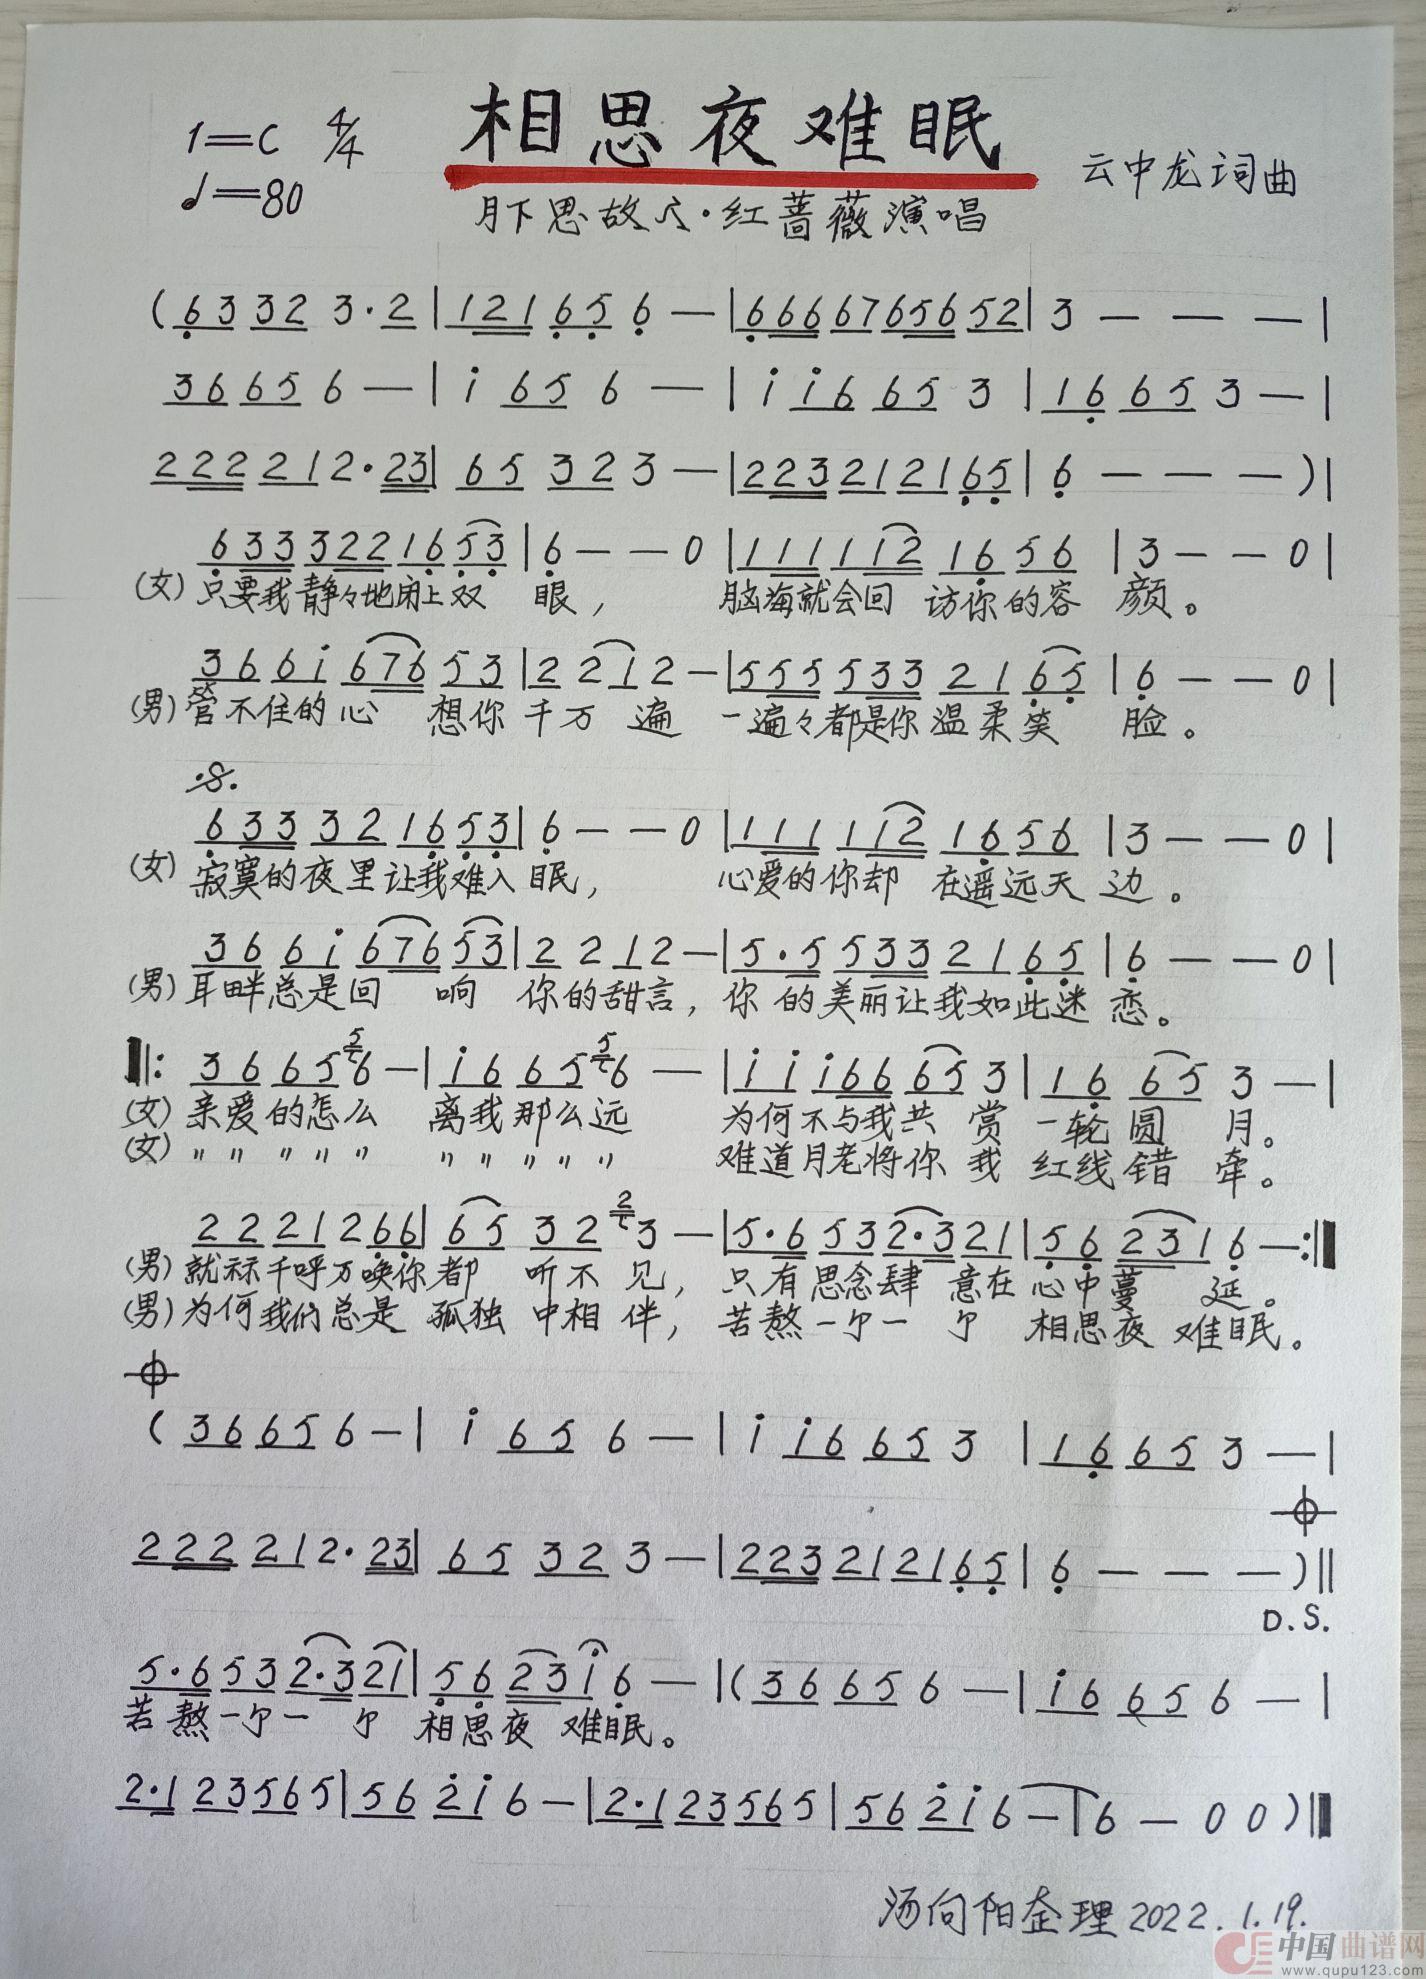 1=C 4/4 相思夜难眠
♩=80 云中龙词曲
月下思故人·红蔷薇演唱
(6332 3·2|121656—|6666765652|3———|
36656—|i656—|ii66653|166653—|
222212·23|653 23—|223212165|6———)|
633322165 3|6——0|111112 1656|3——0|
(女)只要我静々地闭上双 眼, 脑海就会回 访你的容 颜。
366i67653|2212—|555533 2165|6——0|
(男)管不住的心 想你千万 遍 一遍々都是你温柔笑 脸。
633321653|6——0|111112 1656|3——0|
(女)寂寞的夜里让我难入 眠, 心爱的你却 在遥远天 边。
366i67653|2212—|5·55332165|6——0|
(男)耳畔总是回 响 你的甜言, 你 的美丽让我如此迷 恋。
‖: 366556—|i66556—|iii66653|16653—|
(女)亲爱的怎么 离我那么远 为何不与我共 赏 一轮圆 月。
(女)〃〃 〃〃〃 〃〃〃〃〃 难道月老将你 我 红线错 牵。
2221266|653223—|5·6532·321|562316—:‖
(男)就称千呼万唤你都 听不 见, 只有思念肆 意在 心中蔓 延。
(男)为何我们总是 孤独 中相 伴, 苦熬一个一 个 相思夜 难眠。
(36656—|i656—|ii6653|16653—|
222212·23|65323—|223212165|6———)‖
D.S.
5·6532·321|5623i6—|(36656—|i6656—|
苦熬一个一 个 相思夜 难眠。
2·123565|562i6—|2·123565|562i6—|6—00)‖
汤向阳整理2022.1.19.
中国曲谱网
www.qupu123.com